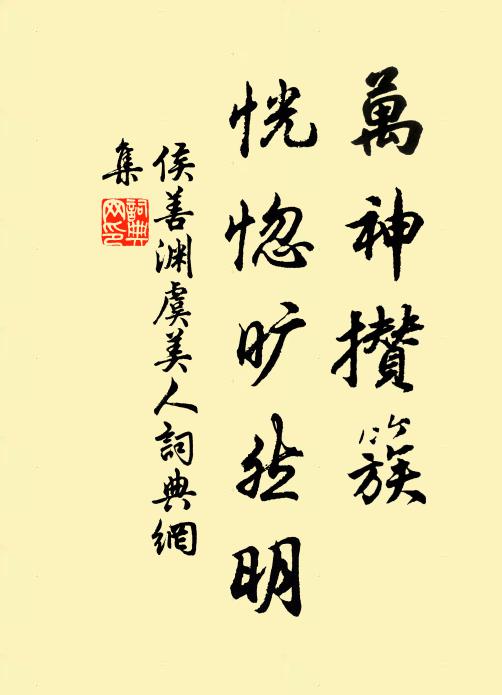 萬神攅簇
恍惚旷然明
侯善渊虞美人詞典網
集
詞典网印